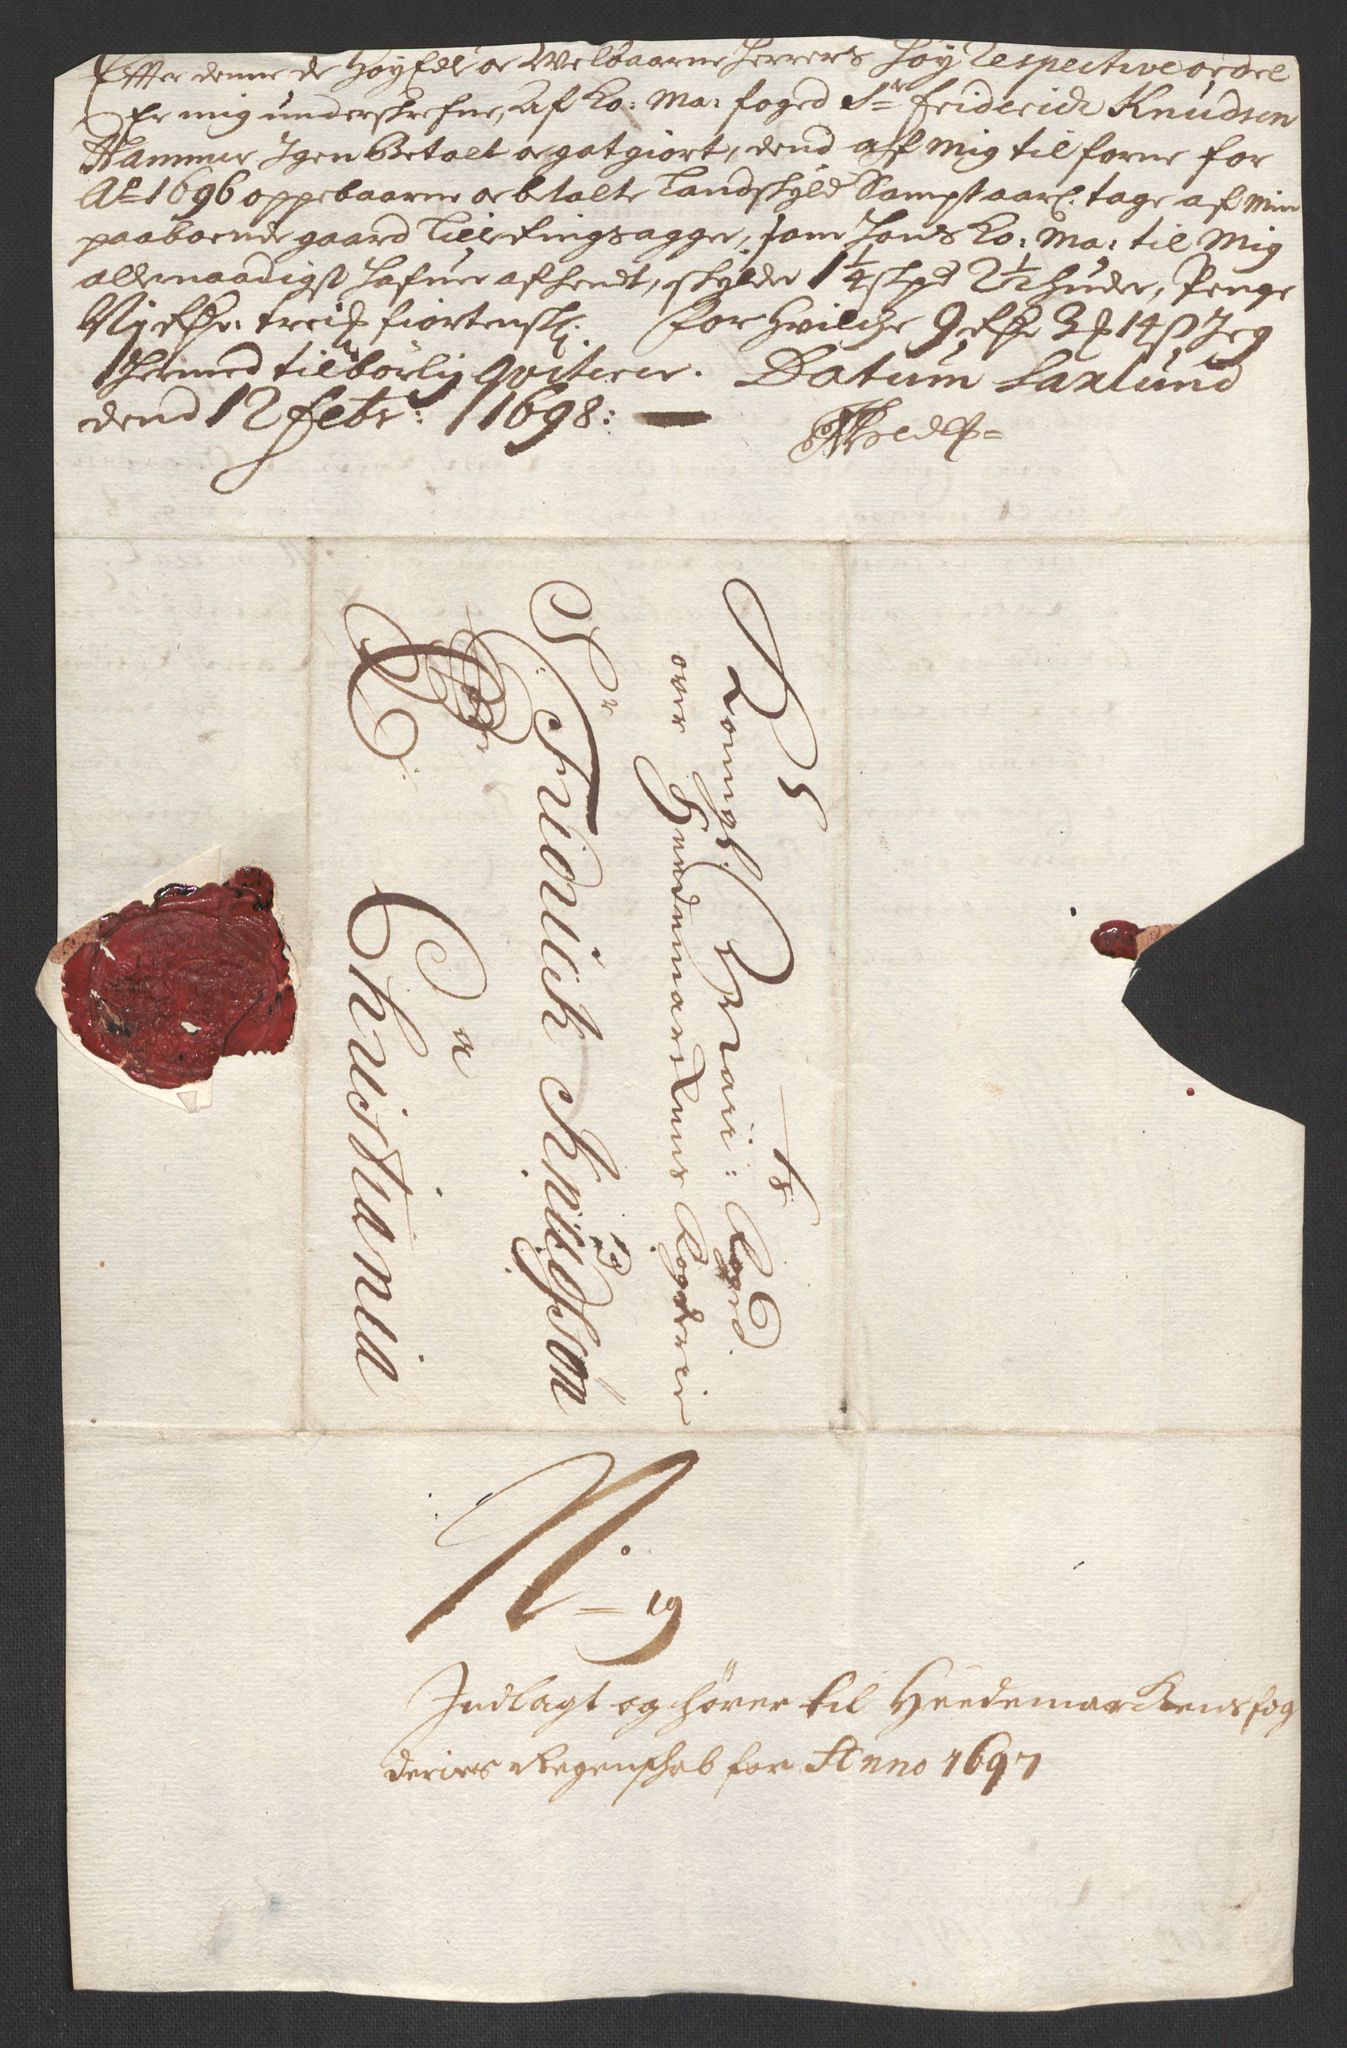 Effter denne de HøyEdle oc Welbaarne Herrers Høy Respective ordre
Er mig underskrefne, af Ko: Ma: foged Sr friderich Knudsen
Hammer Igen Betalt oc gotgiort, dend aff mig til forne for
Ao 1696 oppebaarne oc betalte Landskyld Sampt aarl: tage af Min
paaboende gaard som Hans Ko: Ma: til Mig
allernaadigst hafuer afhendt, skylder 1¼ skpd 2½ huder, Penge
Nj fiorten sk: for hvilche 9 14 s Jeg
hermed tilbørlig qviterer. Datum Saxlund
dend 12 febr: 1698:
Kongl:
foged
over Heedemarckens fogderie
Sr Friderich Knudsøn
a
Christiania
N: 19
Indlagt og hører til Heedemarckens fog
deries Regenskab for Anno 1697